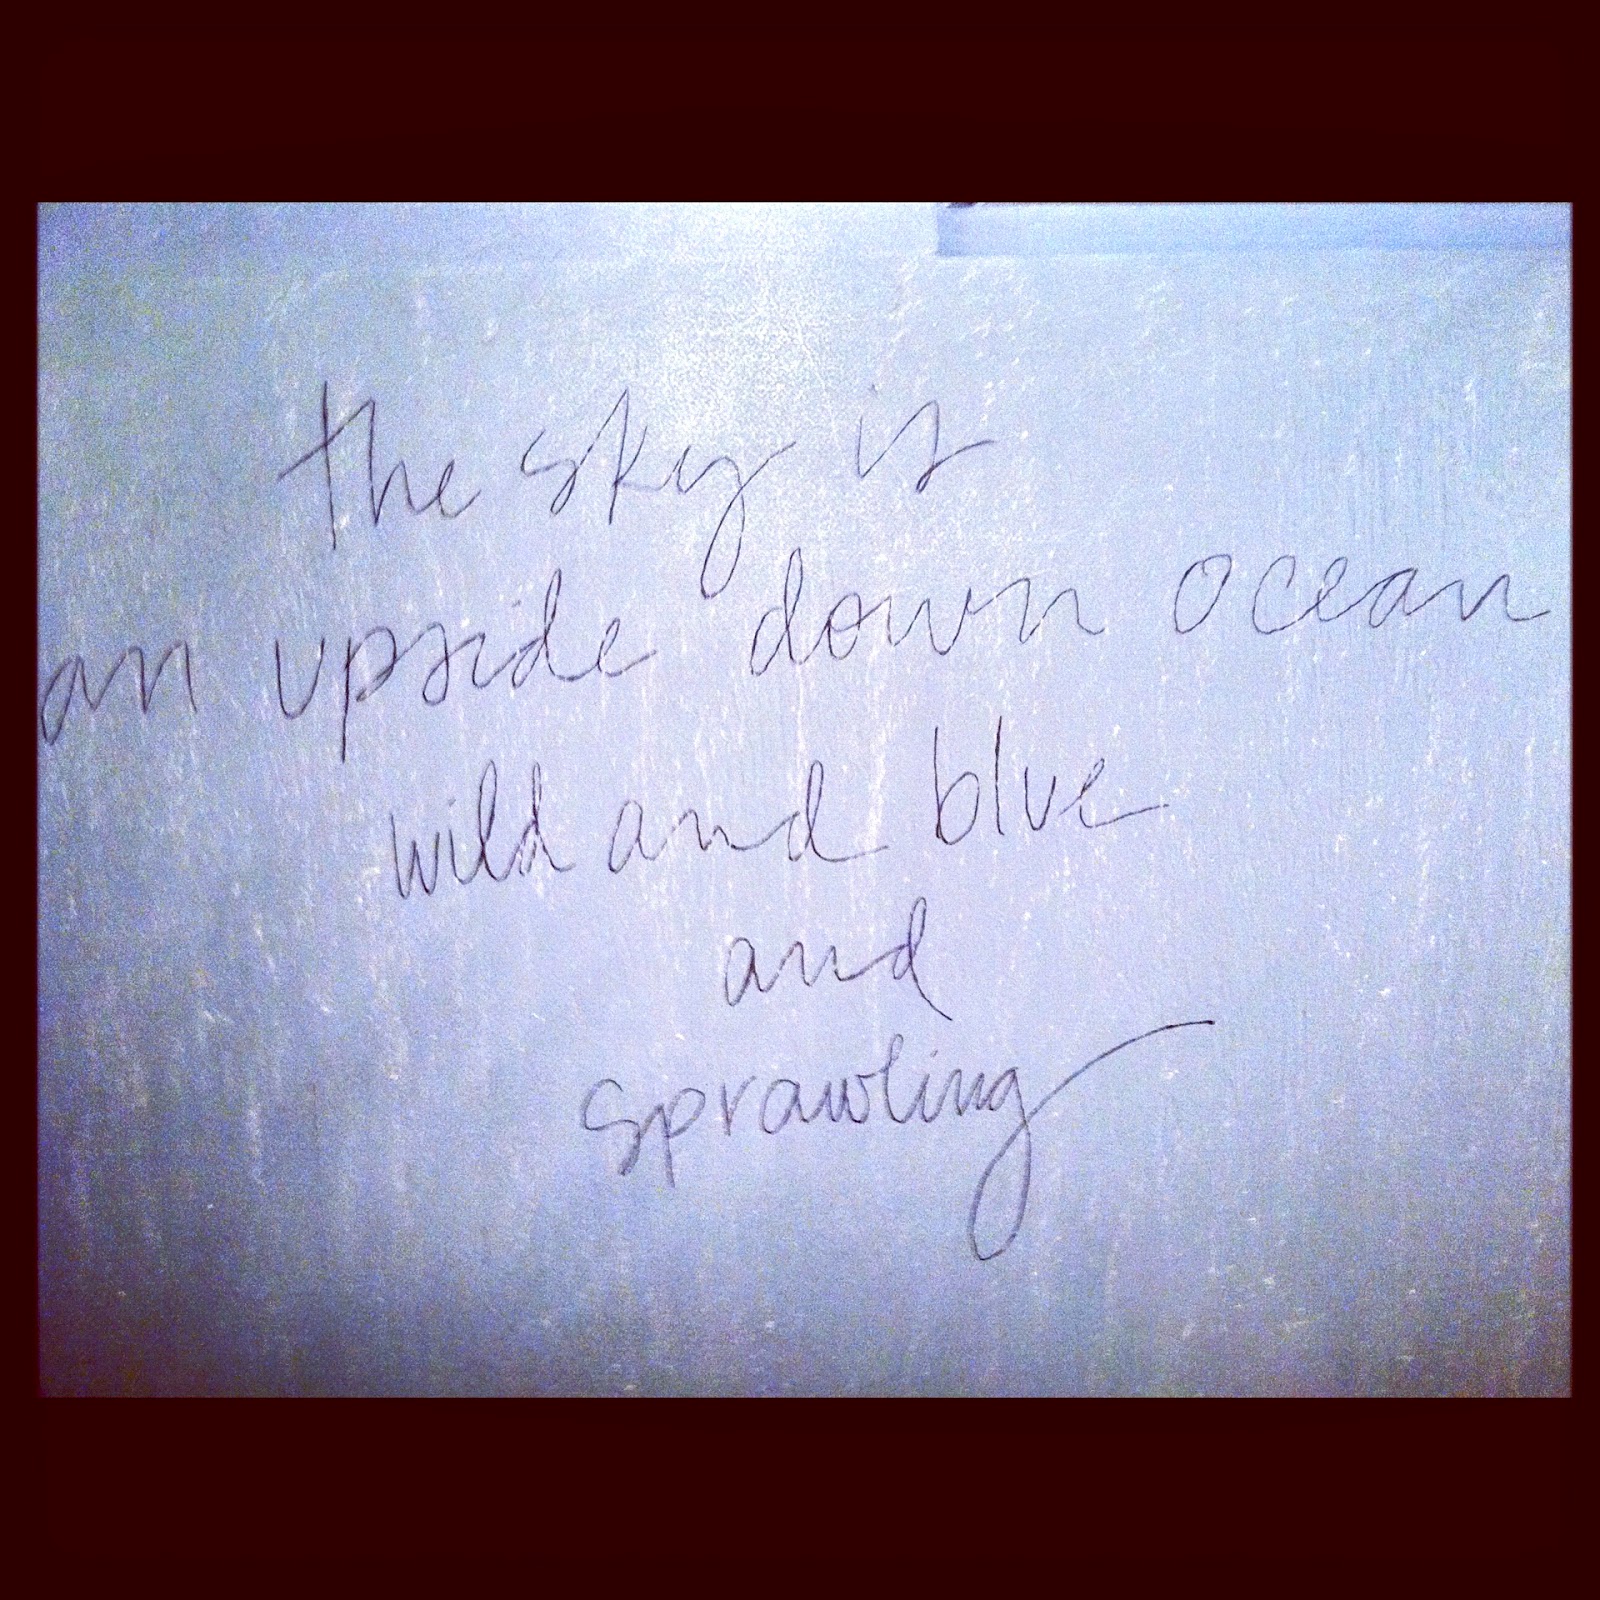 the sky is
an upside down ocean
wild and blue
and
sprawling